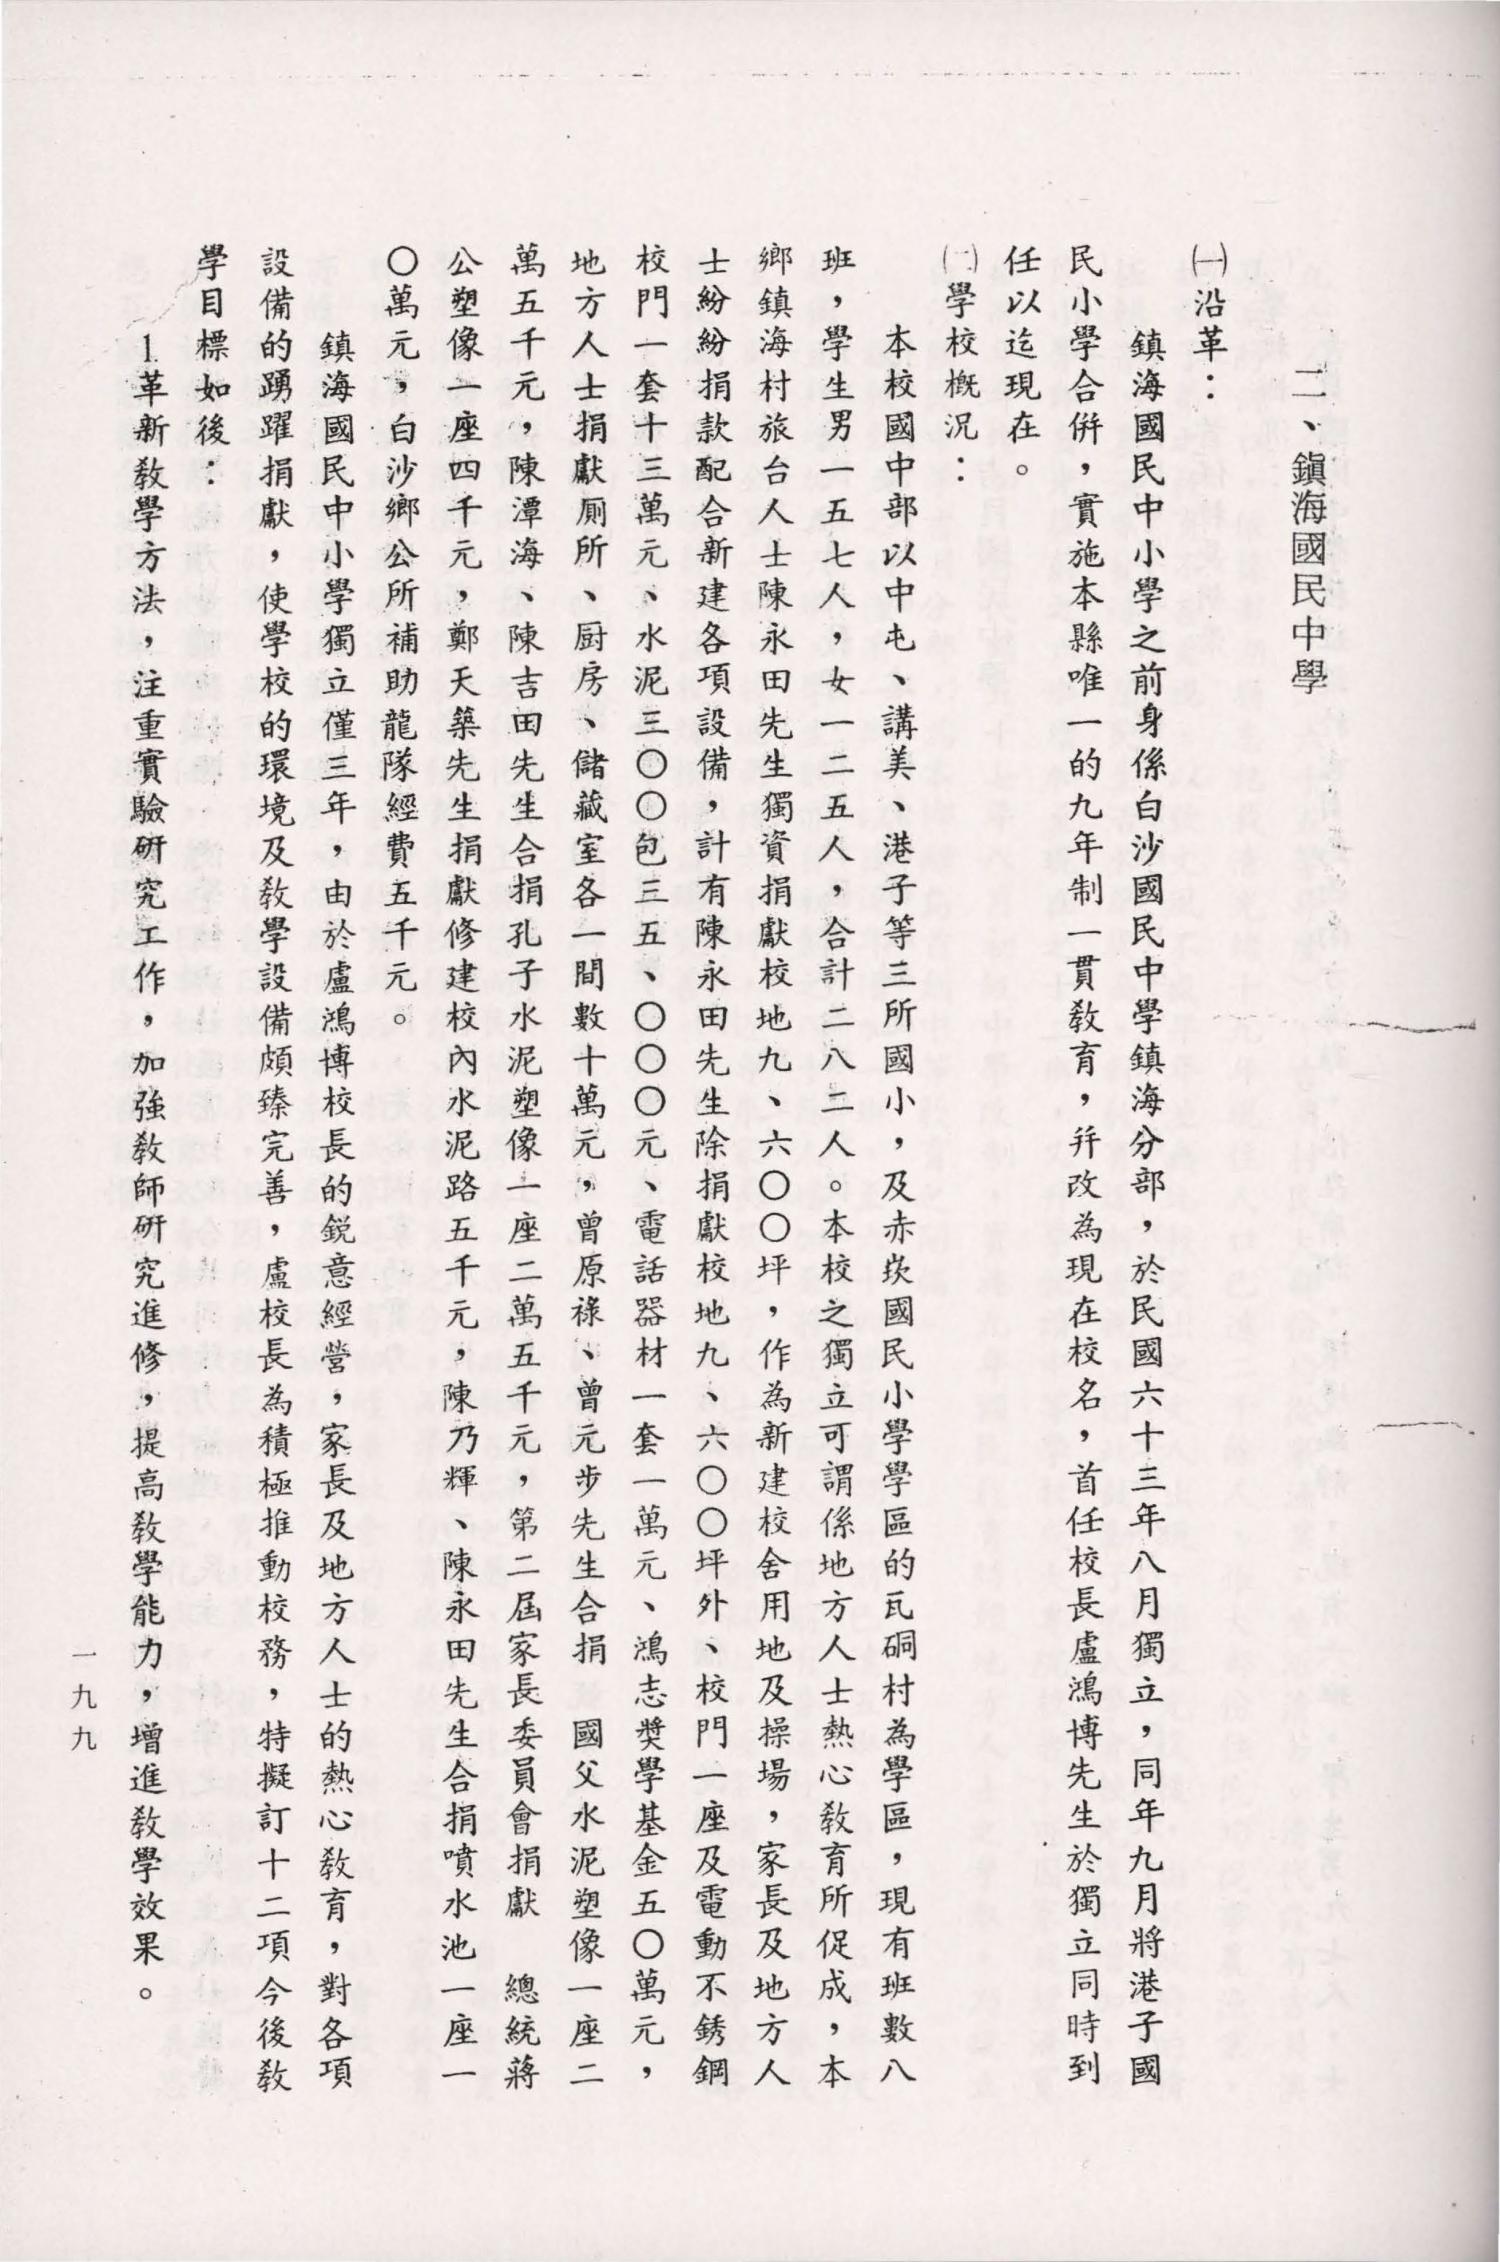 二、鎭海國民中學
㈠沿革：
鎮海國民中小學之前身係白沙國民中學鎮海分部，於民國六十三年八月獨立，同年九月將港子國
民小學合併，實施本縣唯一的九年制一貫教育，并改為現在校名，首任校長盧鴻博先生於獨立同時到
任以迄現在。
㈡學校概況：
本校國中部以中屯、講美、港子等三所國小，及赤崁國民小學學區的瓦硐村為學區，現有班數八
班，學生男一五七人，女一二五人，合計二八二人。本校之獨立可謂係地方人士熱心教育所促成，本
鄉鎮海村旅台人士陳永田先生獨資捐獻校地九、六〇〇坪，作為新建校舍用地及操場，家長及地方人
士紛紛捐款配合新建各項設備，計有陳永田先生除捐獻校地九、六〇〇坪外、校門一座及電動不銹鋼
校門一套十三萬元、水泥三〇〇包三五、〇〇〇元、電話器材一套一萬元、鴻志奬學基金五〇萬元，
地方人士捐獻厠所、厨房、儲藏室各一間數十萬元，曾原祿、曾元步先生合捐　國父水泥塑像一座二
萬五千元，陳潭海、陳吉田先生合捐孔子水泥塑像一座二萬五千元，第二屆家長委員會捐獻　總統蔣
公塑像一座四千元，鄭天築先生捐獻修建校內水泥路五千元，陳乃輝、陳永田先生合捐噴水池一座一
〇萬元，白沙鄉公所補助龍隊經費五千元。
鎮海國民中小學獨立僅三年，由於盧鴻博校長的銳意經營，家長及地方人士的熱心教育，對各項
設備的踴躍捐獻，使學校的環境及教學設備頗臻完善，盧校長為積極推動校務，特擬訂十二項今後教
學目標如後：
1.革新教學方法，注重實驗研究工作，加強教師研究進修，提高教學能力，增進教學效果。
一九九